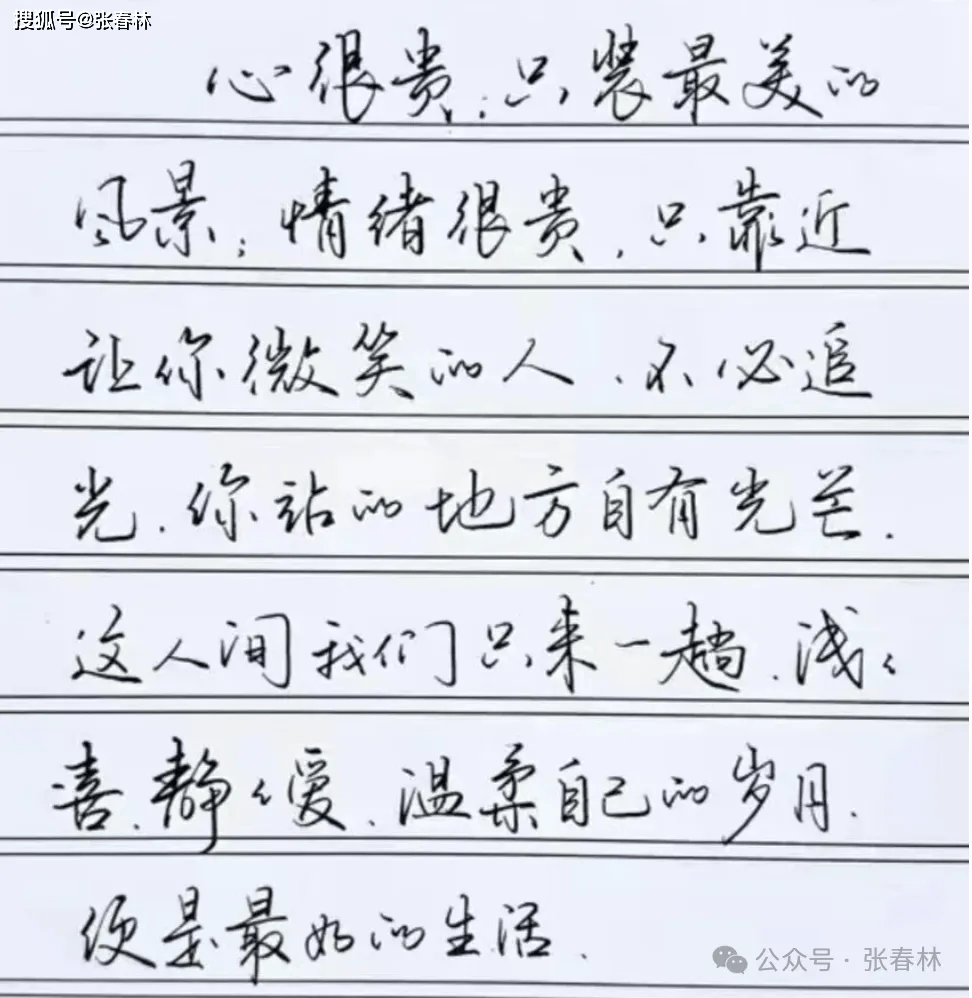 搜狐号@张春林
心很贵,只装最美的
风景;情绪很贵,只靠近
让你微笑的人,不必追
光,你站的地方自有光芒.
这人间我们只来一趟,浅々
喜,静々爱,温柔自己的岁月.
便是最好的生活.
公众号·张春林